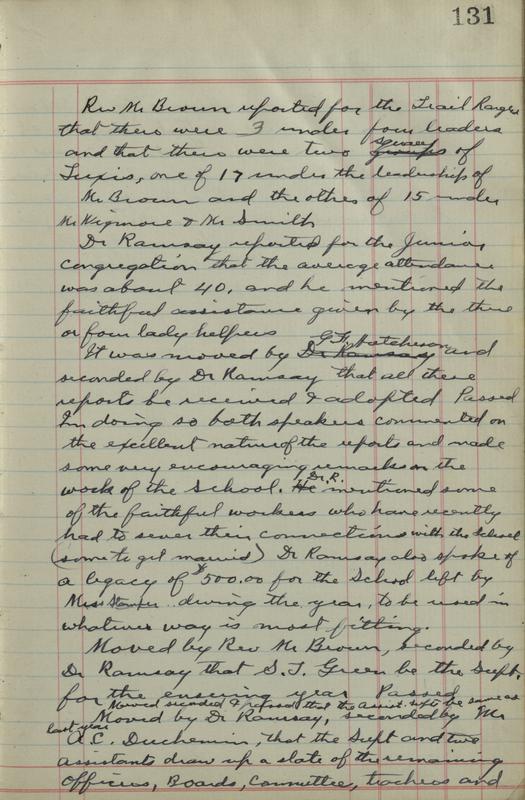 131
Rev Mr Brown reported for the Trail Rangers
that there were 3 under four leaders
squares
and that there were two groups of
Tuxis, one of 17 under the leadership of
Mr Brown and the other of 15 under
Mr & Mr Smith
Dr Ramsay reported for the Junior
congregation that the average attendance
was about 40, and he mentioned the
faithful assistance given by the three
or four lady helpers
G.F. Hutcheson
It was moved by Dr Ramsay and
seconded by Dr Ramsay that all these
reports be received & adopted Passed
In doing so both speakers commented on
the excellent nature of the reports and made
some very encouraging remarks on the
Dr. R.
work of the School. He mentioned some
of the faithful workers who have recently
had to sever their connections with the School
(some to get married) Dr Ramsay also spoke of
a legacy of $500.00 for the School left by
Miss during the year, to be used in
whatever way is most fitting.
Moved by Rev Mr Brown, seconded by
Dr Ramsay that S.T. Green be the Supt.
for the ensuing year Passed
Moved seconded & passed that the assist. supts be same as
last year
Moved by Dr Ramsay, seconded by Mr
A.C. Duchemin, that the Supt and two
assistants draw up a slate of the remaining
Officers, Boards, Committee, teachers and